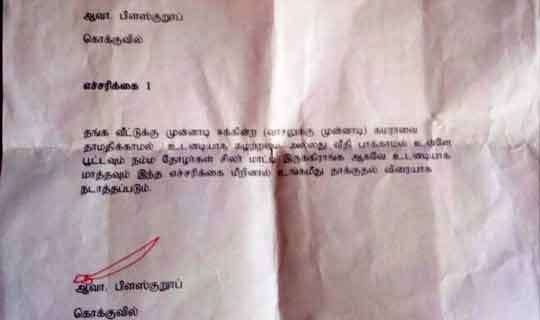 ஆவா. பிளஸ்குறூப்
கொக்குவில்
எச்சரிக்கை 1
தங்க வீட்டுக்கு முன்னாடி சுக்கின்ற (வாசலுக்கு முன்னாடி) கமராவை
தாமதிக்காமல் உடனடியாக கழற்றவும் அல்லது வீதி பாக்காமல் உள்ளே
பூட்டவும் நம்ம தோழர்கள் சிலர் மாட்டி இருக்கிறாங்க ஆகவே உடனடியாக
மாத்தவும் இந்த எச்சரிக்கை மீறினால் உங்கமீது தாக்குதல் விரைவாக
நடாத்தப்படும்.
ஆவா. பிளஸ்குறூப்
கொக்குவில்